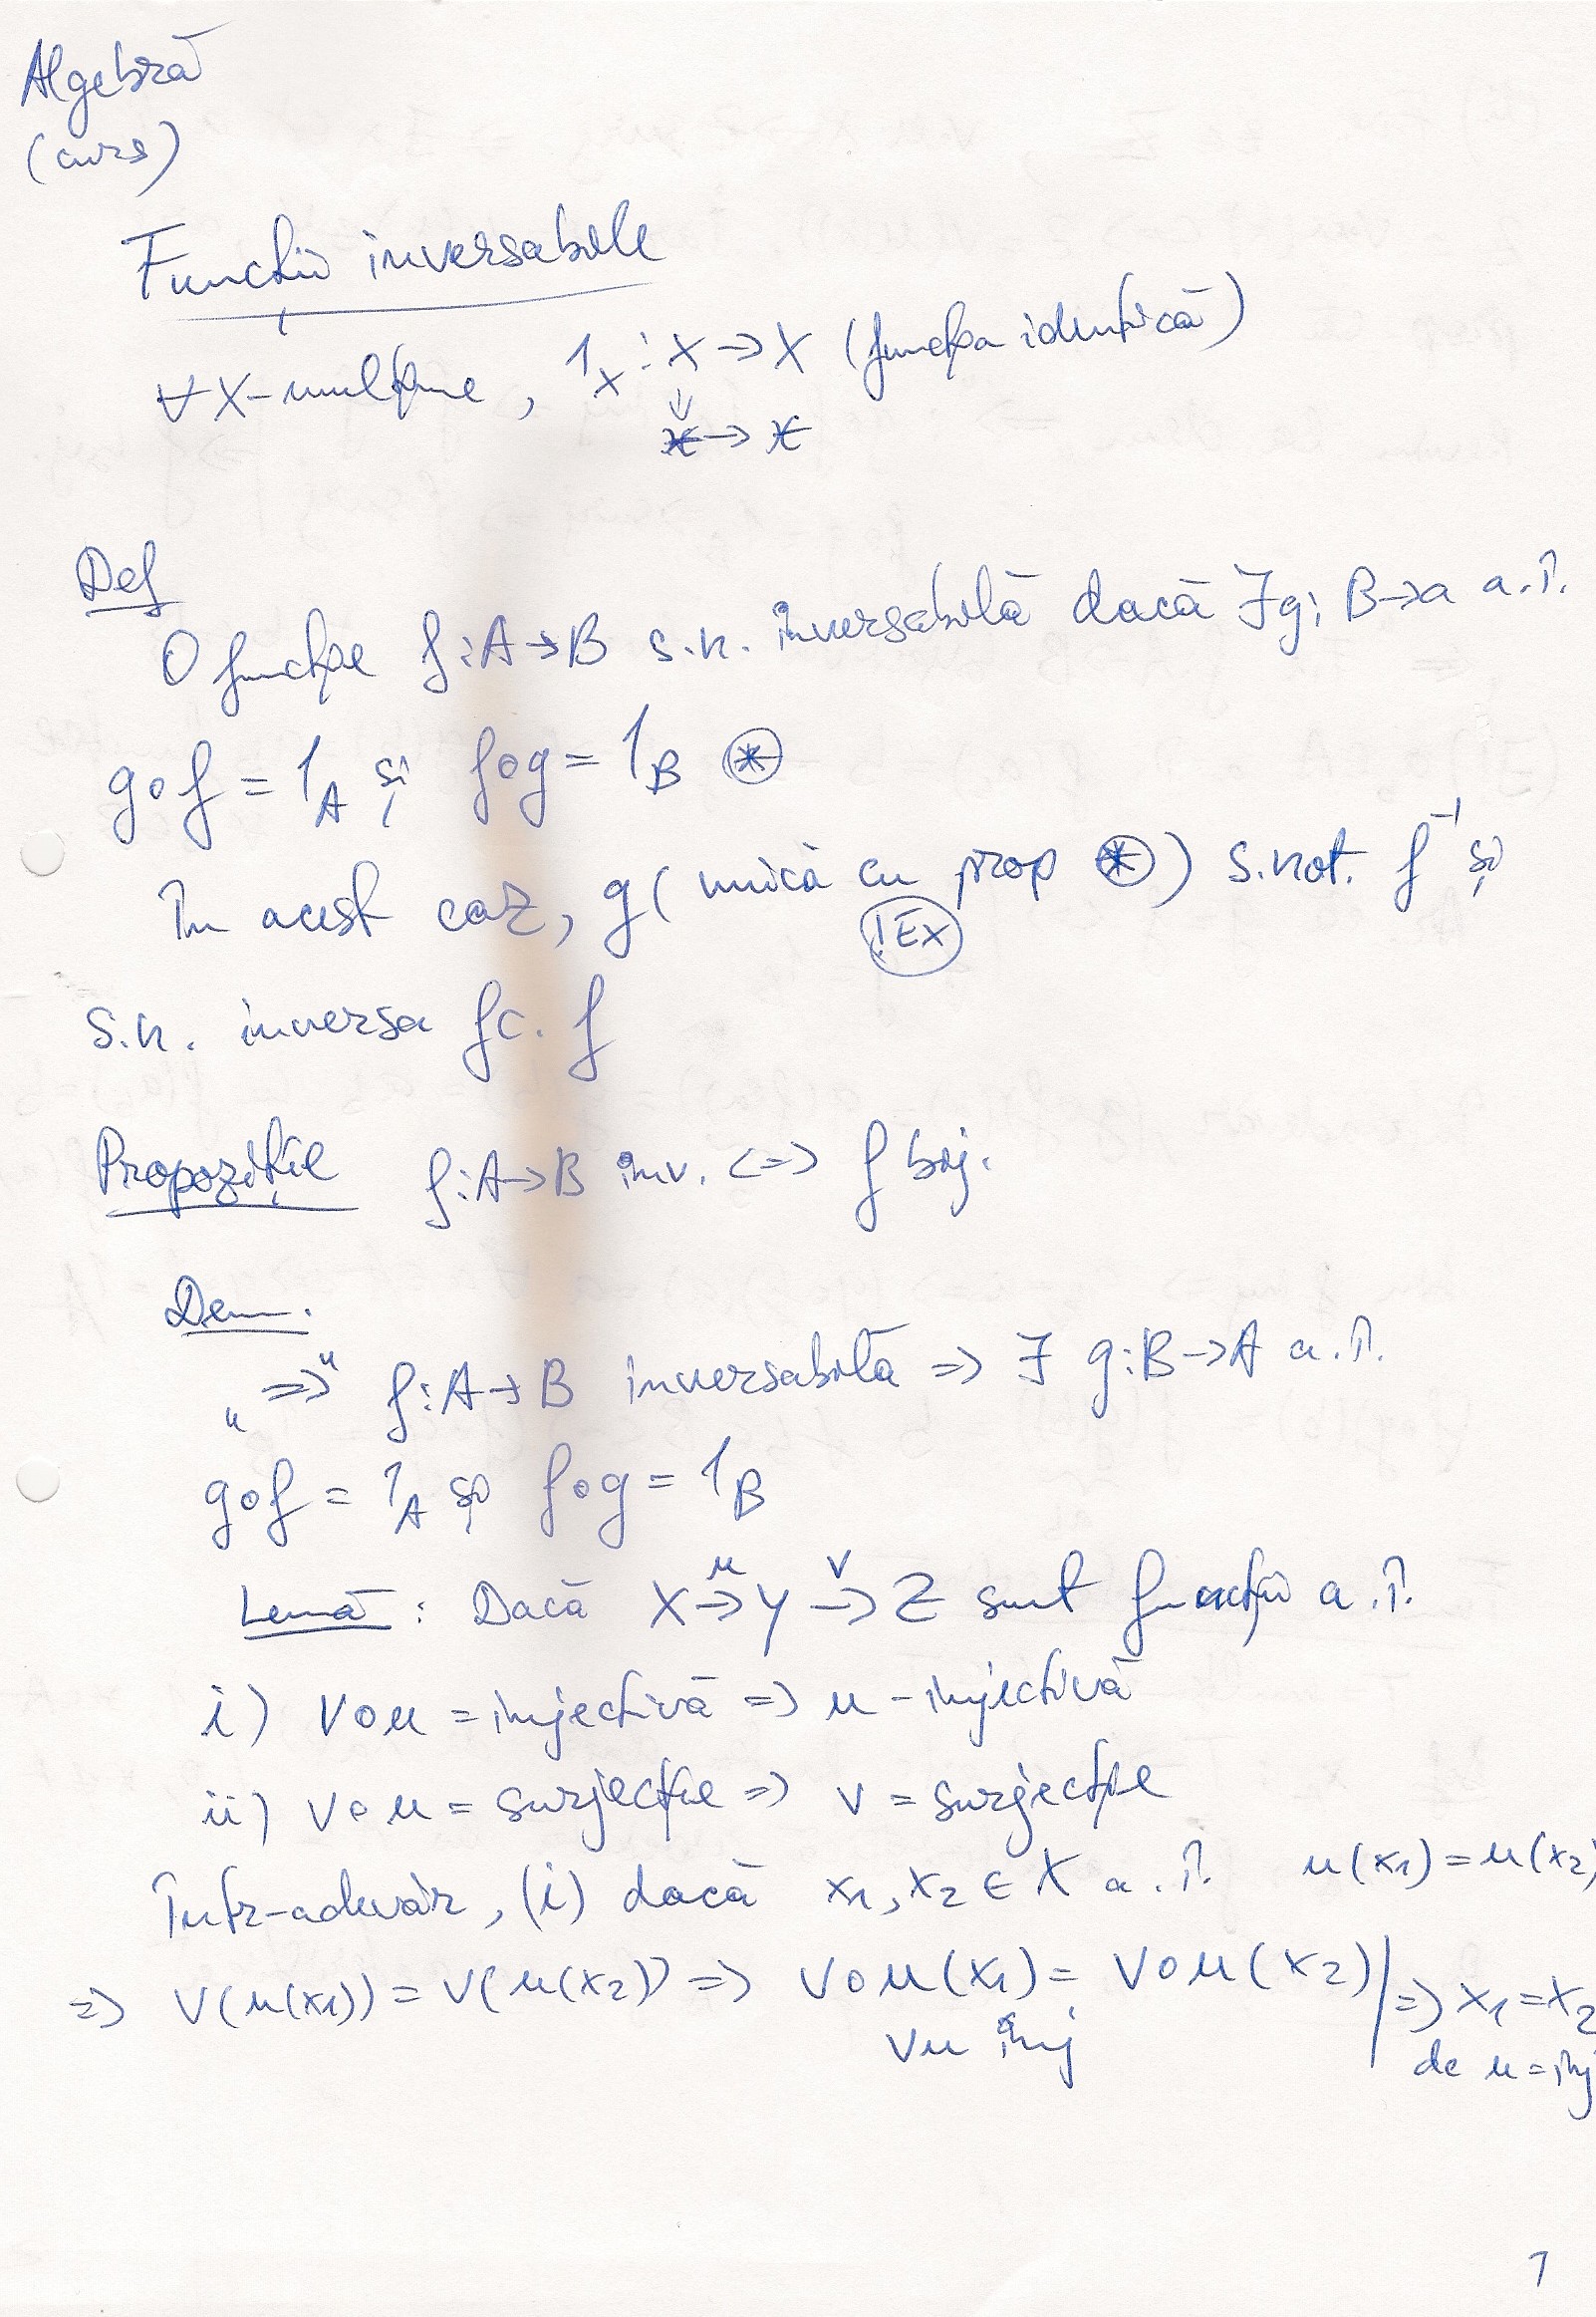 Algebră
(curs)
Funcții inversabile
∀ X-mulțime, 1_X : X → X (funcția identică)
x → x
Def
O funcție f: A → B s.n. inversabilă dacă ∃ g: B → a a.î.
g∘f = 1_A și f∘g = 1_B ⊛
În acest caz, g (unică cu prop ⊛) s.not. f⁻¹ și
!Ex
s.n. inversa fc. f
Propoziție f: A → B inv. <=> f bij.
Dem.
„=>" f: A → B inversabilă => ∃ g: B → A a.î.
g∘f = 1_A și f∘g = 1_B
Lemă : Dacă X →ᵘ Y →ᵛ Z sunt funcții a.î.
i) v∘u = injectivă => u - injectivă
ii) v∘u = surjecție => v = surjecție
Într-adevăr, (i) dacă x₁, x₂ ∈ X a.î. u(x₁) = u(x₂)
=> v(u(x₁)) = v(u(x₂)) => v∘u(x₁) = v∘u(x₂) | => x₁ = x₂
vu inj de u = inj
1